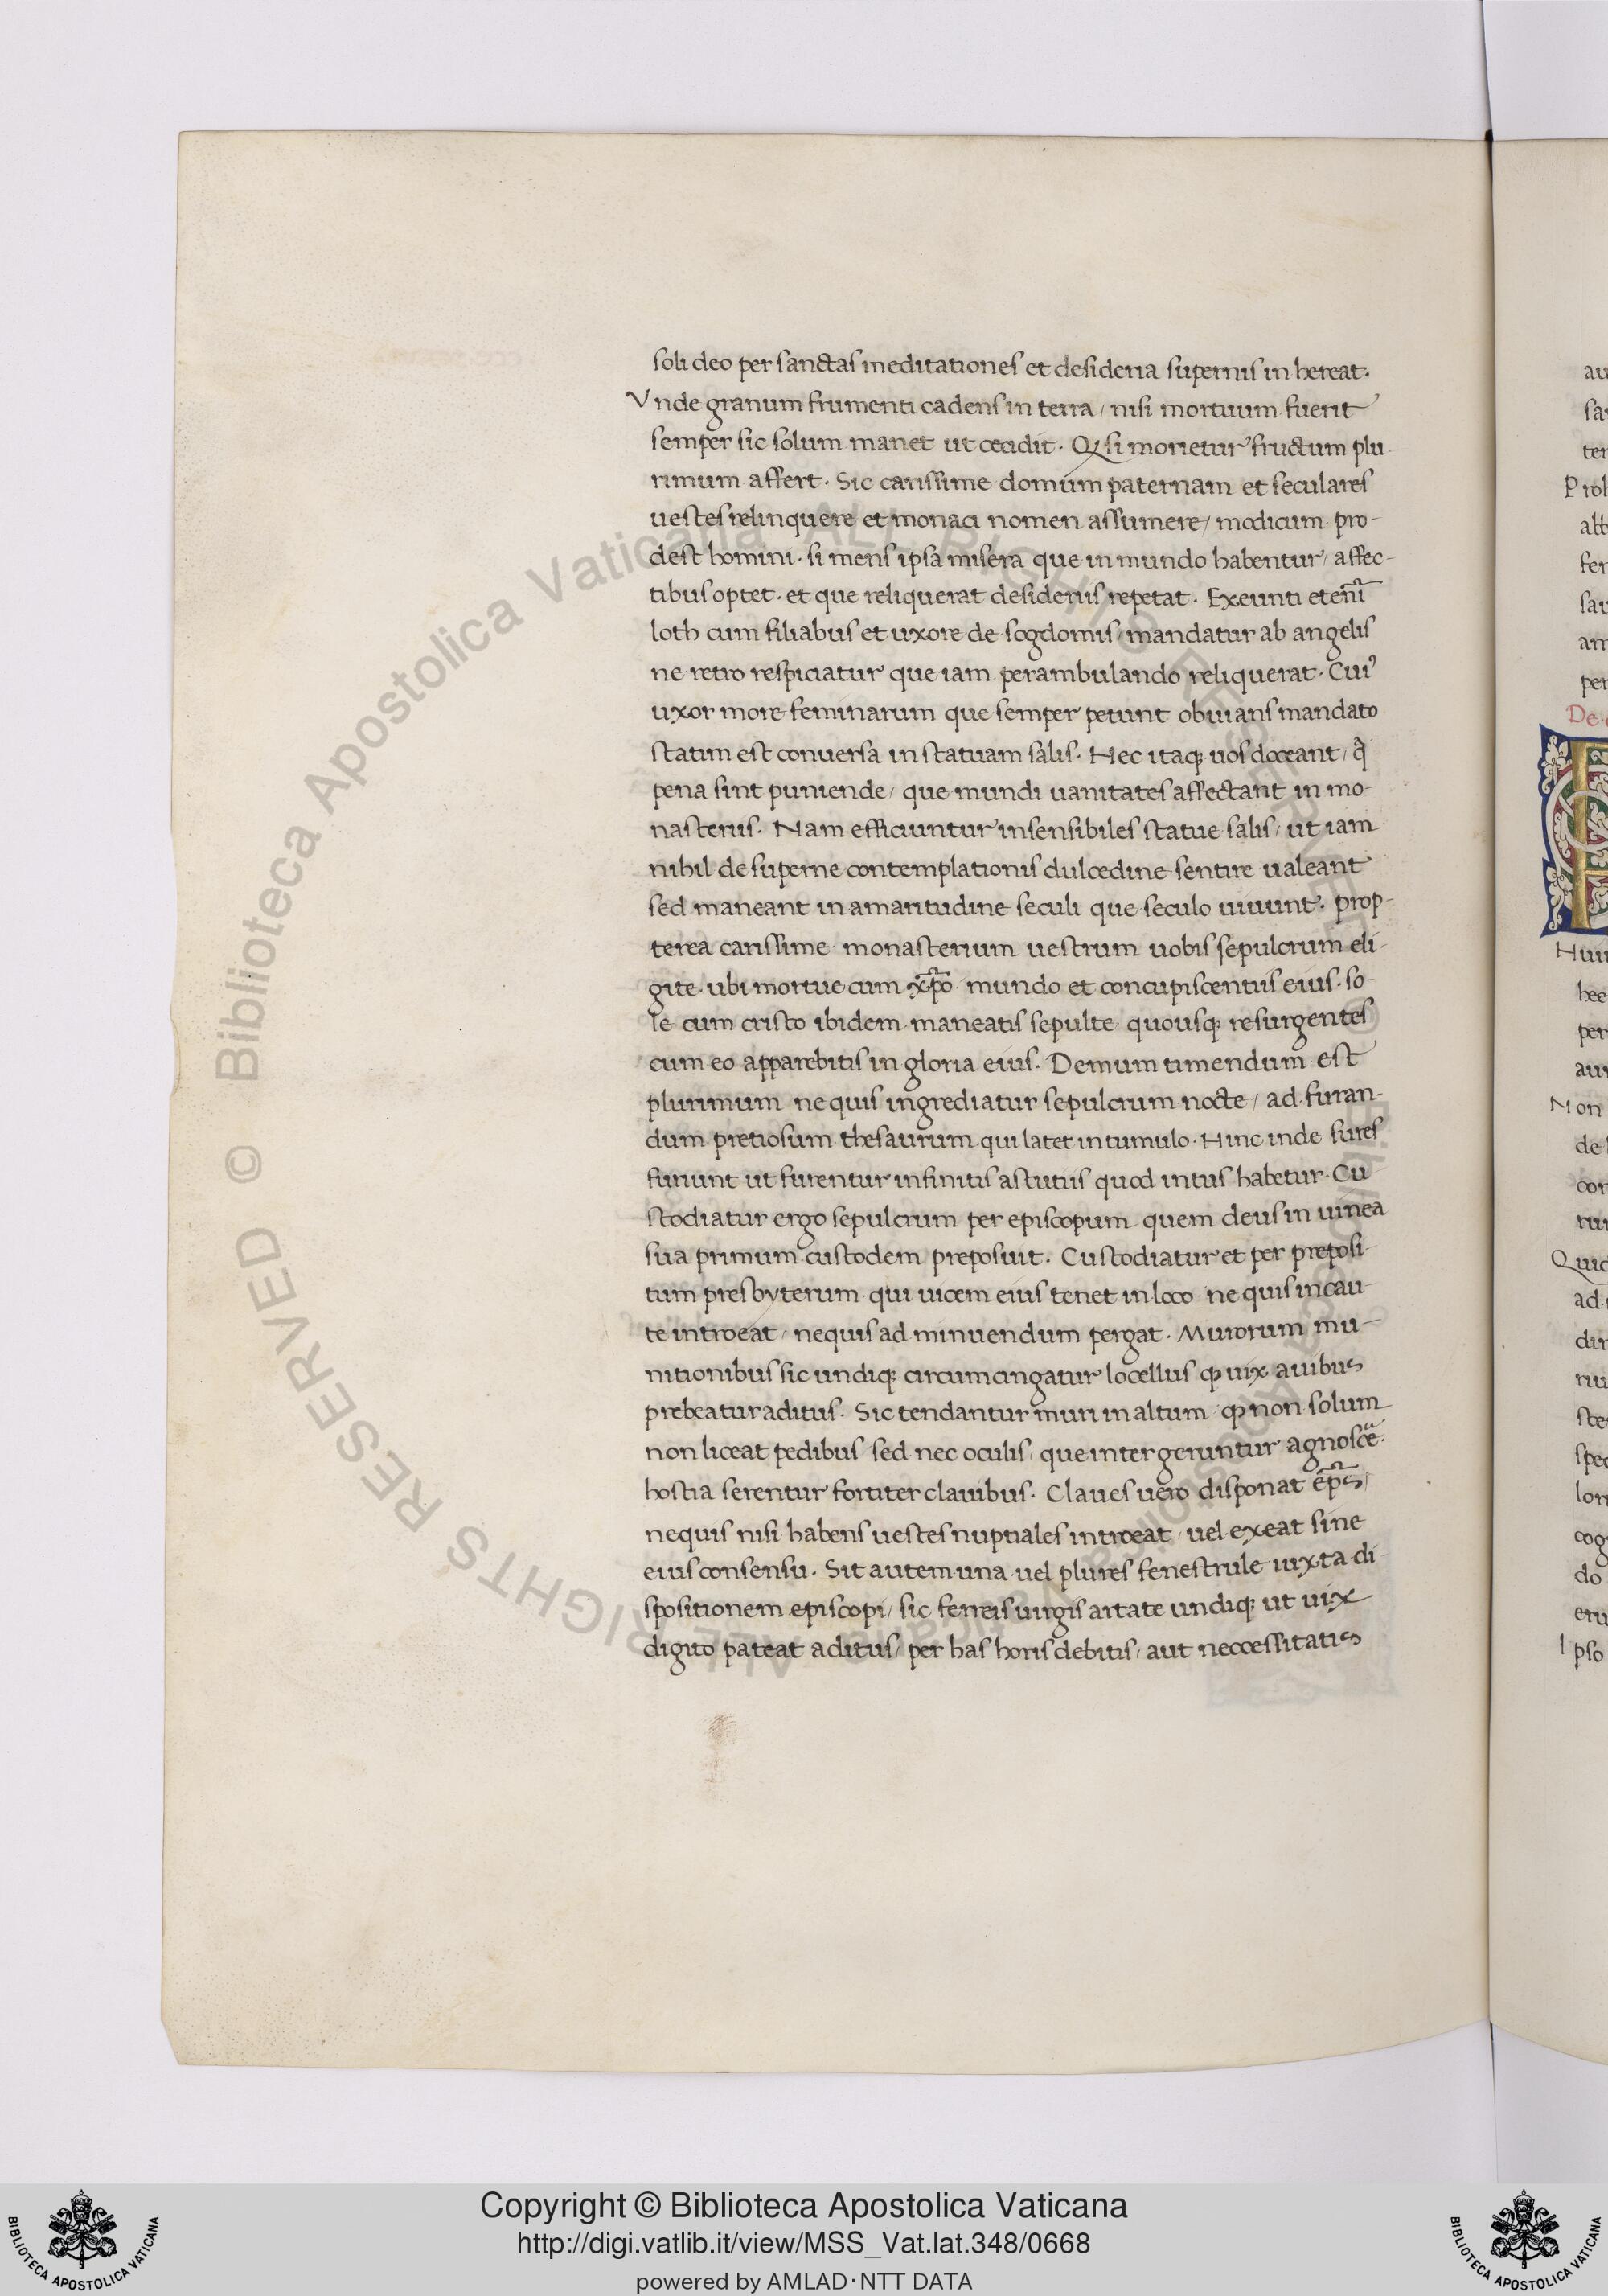 soli deo per sanctas meditationes et desideria supernis in hereat.
Vnde granum frumenti cadens in terra / nisi mortuum fuerit
semper sic solum manet ut cecidit. Qͩ si morietur fructum plu
rimum affert. Sic carissime domum paternam et seculares
uestes relinquere et monaci nomen assumere / modicum pro-
dest homini. si mens ipsa misera que in mundo habentur / affec-
tibus optet. et que reliquerat desideriis repetat. Exeunti eteni͂
loth cum filiabus et uxore de sogdomis / mandatur ab angelis
ne retro respiciatur que iam perambulando reliquerat. Cuiꝰ
uxor more feminarum que semper petunt obuians mandato
statim est conuersa in statuam salis. Nec itaqꝫ uos doceant / qͣ
pena sint puniende / que mundi uanitates affectant in mo-
nasteriis. Nam efficiuntur insensibiles statue salis / ut iam
nihil de superne contemplationis dulcedine sentire ualeant
sed maneant in amaritudine seculi que seculo uiuunt. prop-
terea carissime monasterium uestrum uobis sepulcrum eli-
gite. ubi mortue cum xp͂o mundo et concupiscentiis eius. so-
le cum cristo ibidem maneatis sepulte quousqꝫ resurgentes
cum eo apparebitis in gloria eius. Demum timendum est
plurimum ne quis ingrediatur sepulcrum nocte / ad furan-
dum pretiosum thesaurum qui latet in tumulo. Hinc inde fures
furiunt ut furentur infinitis astutiis quod intus habetur. Cu
stodiatur ergo sepulcrum per episcopum quem deus in uinea
sua primum custodem preposuit. Custodiatur et per preposi-
tum presbyterum qui uicem eius tenet in loco ne quis incau-
te introeat / nequis ad minuendum pergat. Murorum mu-
nitionibus sic undiqꝫ circumcingatur locellus ꝙ uix auibus
prebeatur aditus. Sic tendantur muri in altum ꝙ non solum
non liceat pedibus sed nec oculis / que inter geruntur agnosce͂.
hostia serentur fortiter clauibus. Claues uero disponat ep͂s /
nequis nisi habens uestes nuptiales introeat / uel exeat sine
eius consensu. Sit autem una uel plures fenestrule iuxta di-
spositionem episcopi / sic ferreis uirgis artate undiqꝫ ut uix
digito pateat aditus / per has horis debitis / aut neccessitatis
Copyright © Biblioteca Apostolica Vaticana
http://digi.vatlib.it/view/MSS_Vat.lat.348/0668
powered by AMLAD·NTT DATA